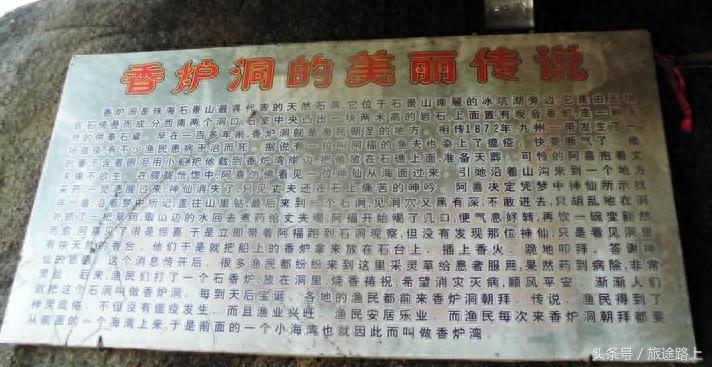 香炉洞的美丽传说
香炉洞是珠海石景山最具代表的天然石洞，它位于石景山南麓的冰坑湖旁边，它是由五块
巨石倚叠而成，分西南两个洞口，石室中央凸出一块两米高的岩石，上面置有观音香炉，是一个
天然的供奉石桌。早在一百多年前，香炉洞就是渔民朝圣的地方。相传1872年，九州一带发生了一
场瘟疫，有不少渔民患病不治而死。据说有一位叫阿福的渔夫也染上了瘟疫，快要断气了，他
的妻子含着眼泪用小船把他载到香炉湾岸边，把他放在石礁上面，准备天葬。可怜的阿喜抱着丈
夫痛不欲生。在朦胧恍惚中，阿喜仿佛看见一位神仙从海面过来，引她沿着山沟来到一个地方
采药。一觉醒过来，神仙消失了，只见丈夫还在石上痛苦的呻吟。阿喜决定凭梦中神仙所示找
寻一番，沿着梦中所记，直往山里钻，最后来到一个石洞，见洞穴又黑有深，不敢进去，只胡乱地在洞
外抓了一把草药，取山边的水回去煮药给丈夫喝，阿福开始喝了几口，便气息好转，再饮一碗变豁然
而愈，阿喜见了很是惊喜，于是立即带着阿福跑到石洞观察，但没有发现那位神仙，只是看见洞里
有块天然的香台。他们于是就把船上的香炉拿来放在石台上，插上香火，跪地叩拜，答谢神
仙的恩德。这个消息传开后，很多渔民都纷纷来到这里采灵草给患者服用，果然药到病除，非常
灵验。后来，渔民们打了一个石香炉，放在洞里，烧香祷祝，希望消灾灭病，顺风平安。渐渐人们
就把这个石洞叫做香炉洞。每到天后宝诞，各地的渔民都前来香炉洞朝拜。传说，渔民得到了
神灵庇佑，不但没有瘟疫发生，而且渔业兴旺，渔民安居乐业。而渔民每次来香炉洞朝拜都要
从前面的一个海湾上来，于是前面的一个小海湾也就因此而叫做香炉湾。
头条号／旅途路上